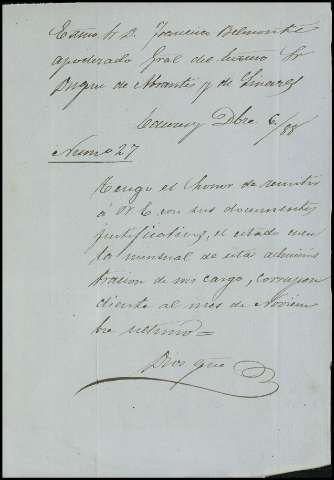 Exmo Sr D. Francisco Belmonte
apoderado Gral del Exmo Sr
Duque de Abrantes y de Linares
Dbre 6/88
Num 27
Tengo el honor de remitir
á V. E. con sus documentos
justificativos, el estado cuen
ta mensual de esta adminis
tracion de mi cargo, correspon
diente al mes de Noviem
bre ultimo=
Dios gue